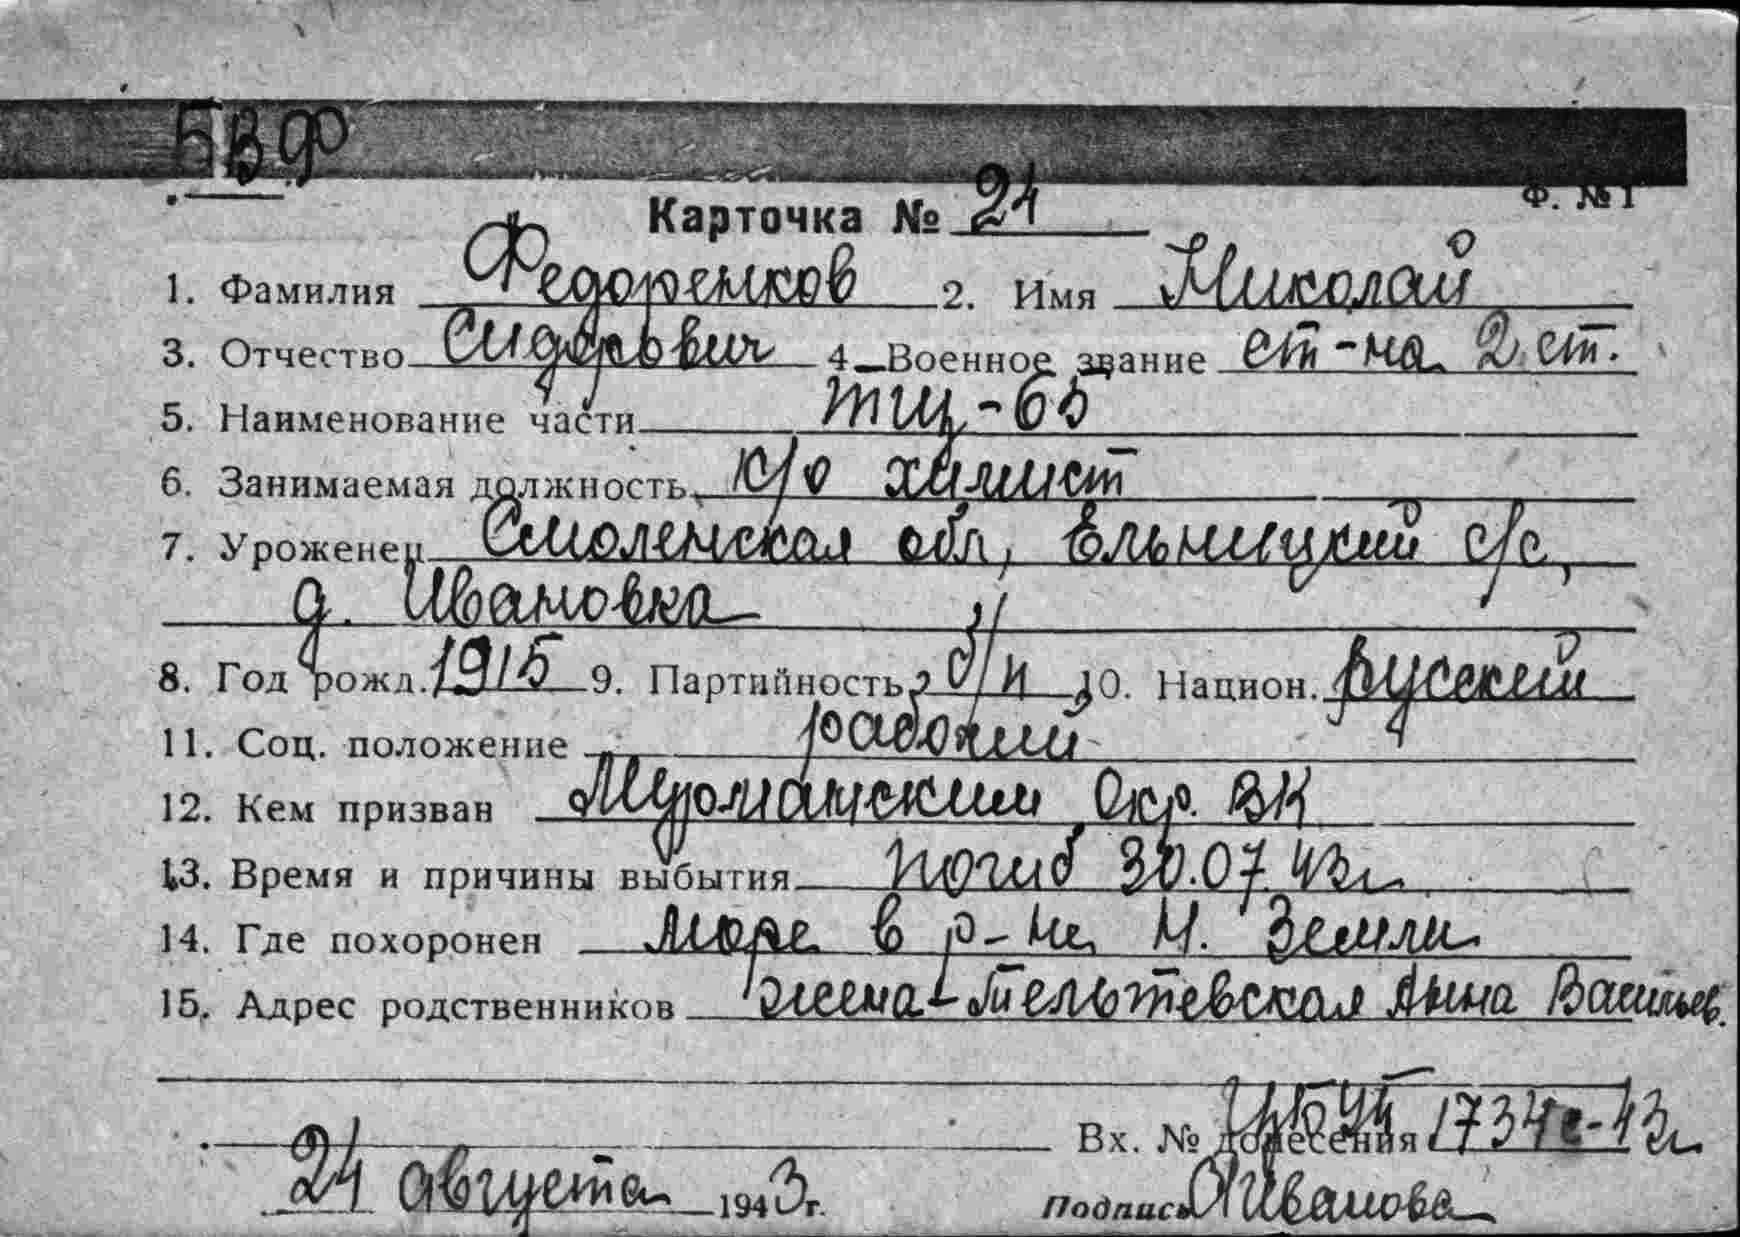 БВФ
Ф. №1
Карточка № 24
1. Фамилия Федоренков 2. Имя Николай
3. Отчество Сидорович 4. Военное звание ст-на 2 ст.
5. Наименование части ТЩ-65
6. Занимаемая должность к/о химист
7. Уроженец Смоленская обл, Ельницкий с/с,
д. Ивановка
8. Год рожд. 1915 9. Партийность б/п 10. Национ. русский
11. Соц. положение рабочий
12. Кем призван Мурманским Окр. ВК
13. Время и причины выбытия погиб 30.07.43г
14. Где похоронен море в р-не Н. Земли
15. Адрес родственников жена - Тельтевская Анна Васильев.
Вх. № донесения 1734с-43г
24 августа 1943 г. Подпись Иванова